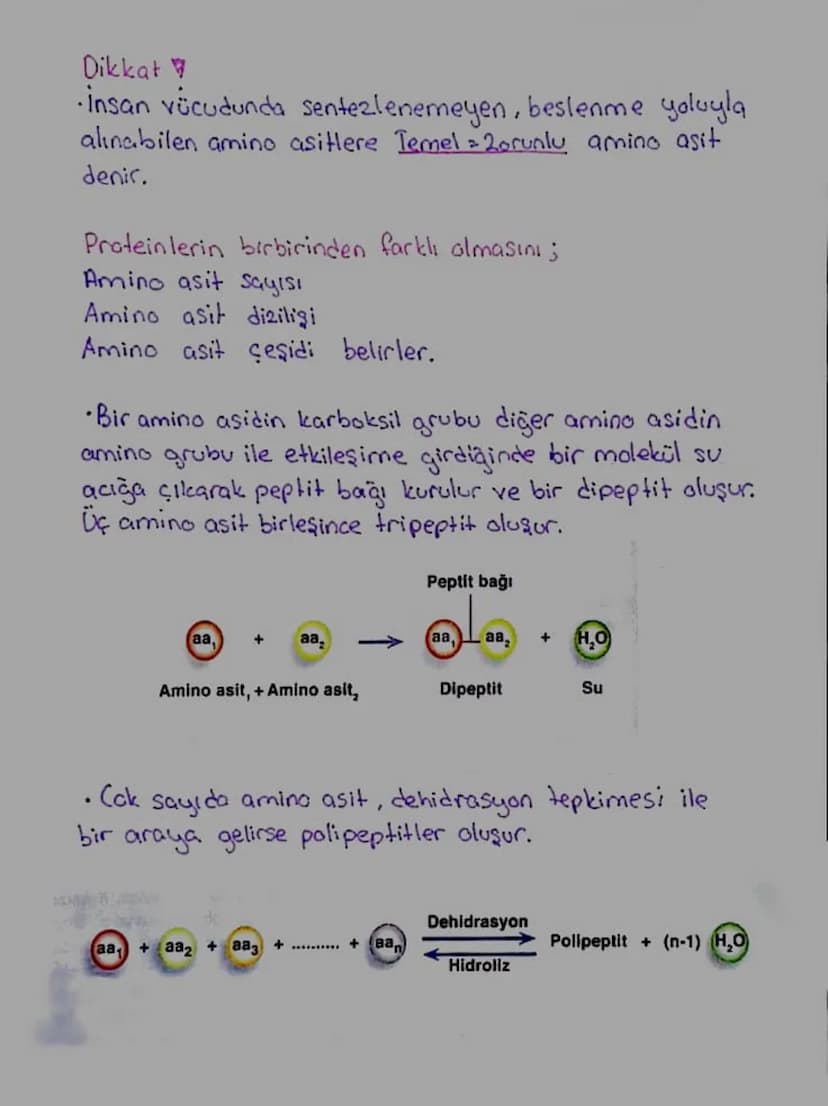 Dikkat !
• İnsan vücudunda sentezlenemeyen, beslenme yoluyla
alınabilen amino asitlere Temel = Zorunlu amino asit
denir.
Proteinlerin birbirinden farklı olmasını ;
Amino asit sayısı
Amino asit dizilişi
Amino asit çeşidi belirler.
• Bir amino asidin karboksil grubu diğer amino asidin
amino grubu ile etkileşime girdiğinde bir molekül su
açığa çıkarak peptit bağı kurulur ve bir dipeptit oluşur.
Üç amino asit birleşince tripeptit oluşur.
Peptit bağı
aa₁ + aa₂ → aa₁ aa₂ + H₂O
Amino asit₁ + Amino asit₂ Dipeptit Su
• Çok sayıda amino asit, dehidrasyon tepkimesi ile
bir araya gelirse polipeptitler oluşur.
Dehidrasyon
aa₁ + aa₂ + aa₃ + .......... + aaₙ Polipeptit + (n-1) H₂O
Hidroliz